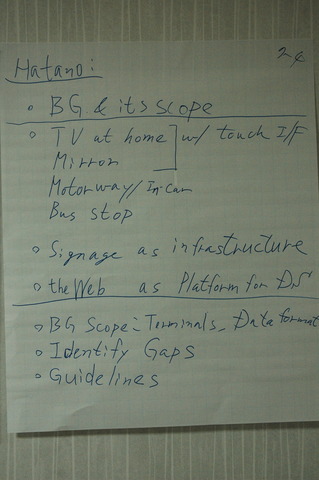 2-c
Hatano:
• BG & its scope
• TV at home w/ touch I/F
Mirror
Motorway/In-car
Bus stop
• Signage as infrastructure
• the Web as Platform for DS
• BG Scope: Terminals, Data format
• Identify Gaps
• Guidelines